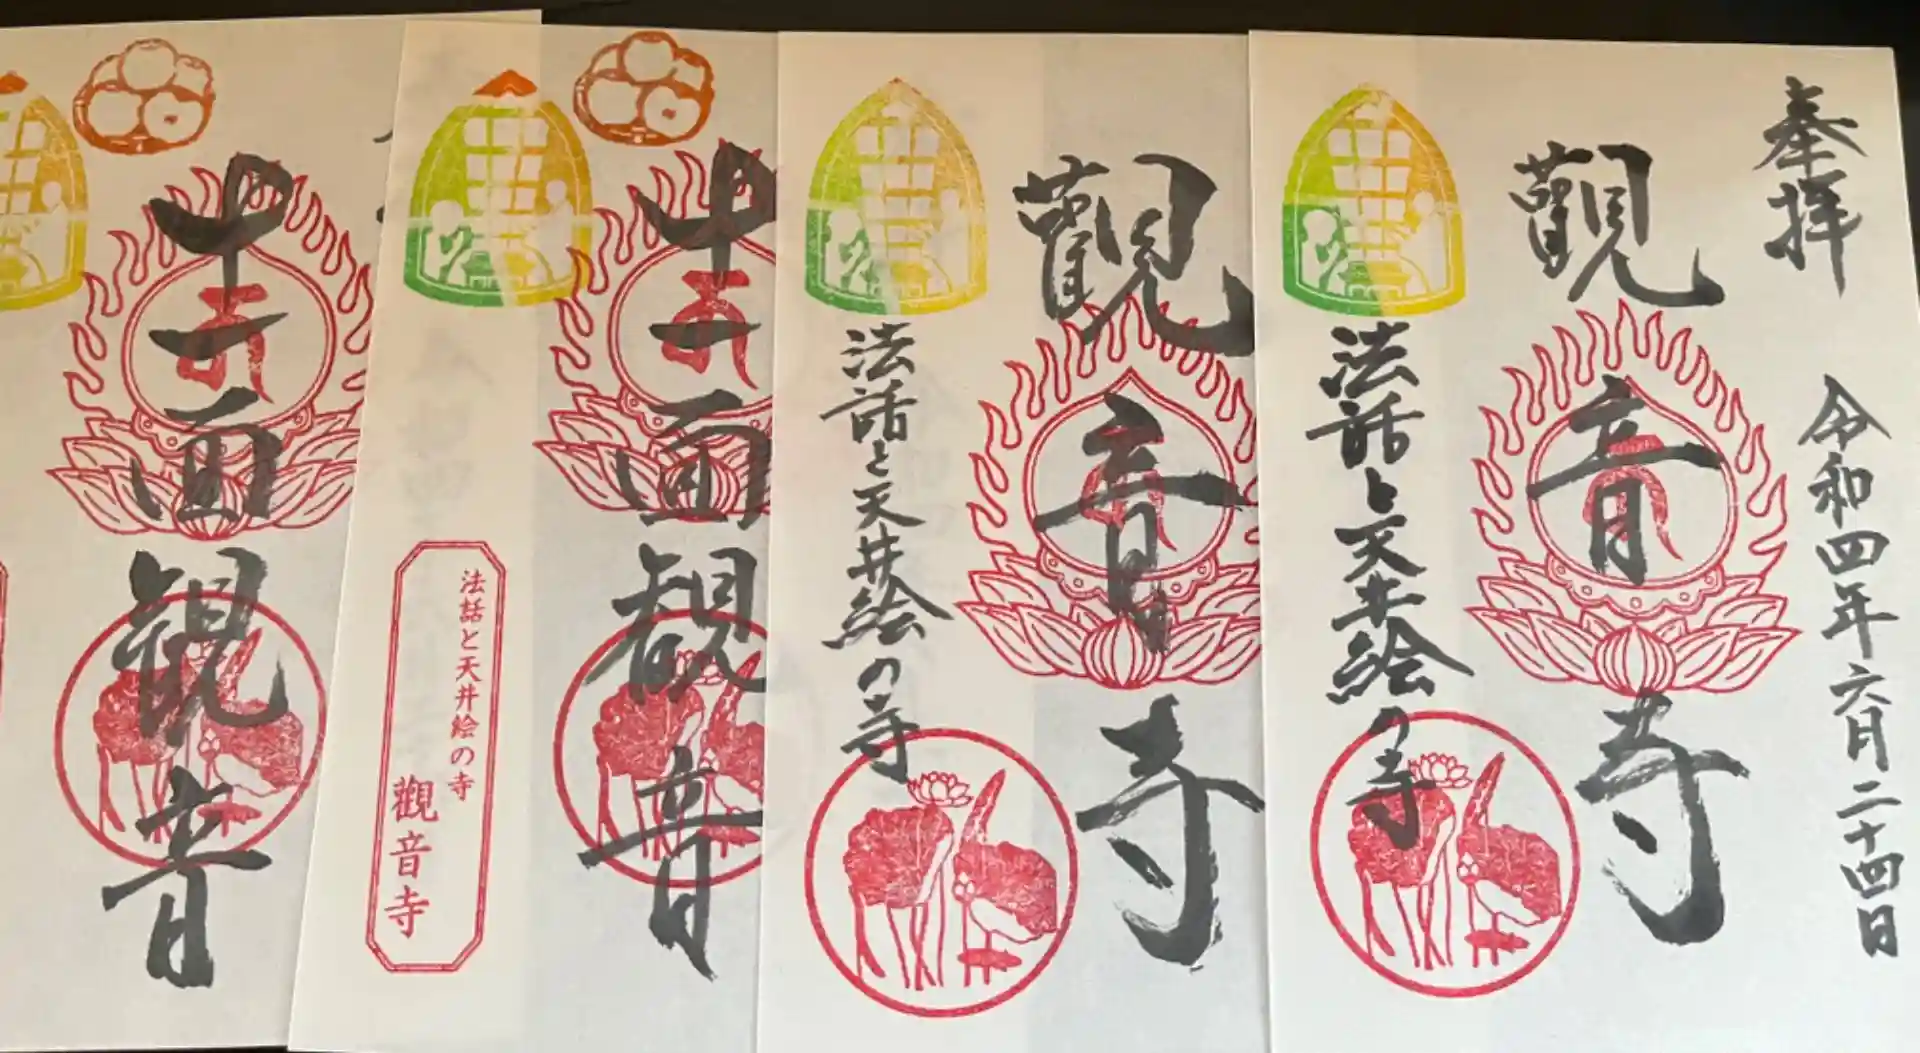 奉拝
令和四年六月二十四日
觀音寺
法話と天井絵の寺
觀音寺
法話と天井絵の寺
十一面観音
法話と天井絵の寺
觀音寺
十一面観音